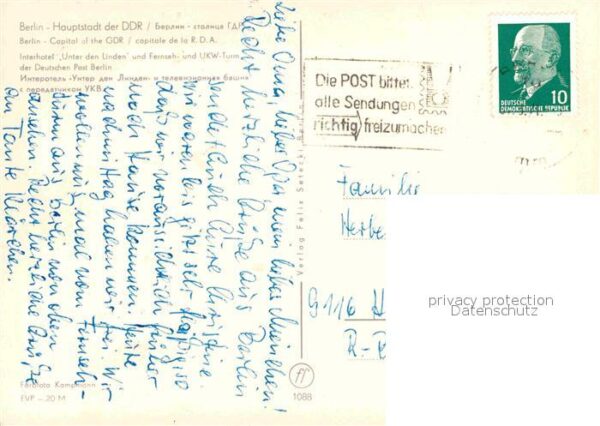 Berlin - Hauptstadt der DDR / Берлин - столица ГДР
Berlin - Capital of the GDR / capitale de la R.D.A.
Interhotel „Unter den Linden" und Fernseh- und UKW-Turm
der Deutschen Post Berlin
Интеротель «Унтер ден Линден» и телевизионная башня
с передатчиком УКВ
Liebe Oma, lieber Opa, mein liebes Mienchen!
Recht herzliche Grüße aus Berlin
sendet Euch Eure Christine.
Wir waren bis jetzt sehr
daß wir voraussichtlich früher
nach Hause kommen. Heute
nachmittag haben wir frei. Wir
wollen uns mal vom Fernseh-
turm aus Berlin von oben
ansehen. Recht herzliche Grüße
an Tante Klärchen.
Farbfoto Kampmann
EVP - 20 M
Verlag Felix Setecki, Berlin
1088
Die POST bittet
alle Sendungen
richtig freizumachen
DEUTSCHE
DEMOKRATISCHE REPUBLIK
10
Familie
Herbe
9116 H
R-R
privacy protection
Datenschutz